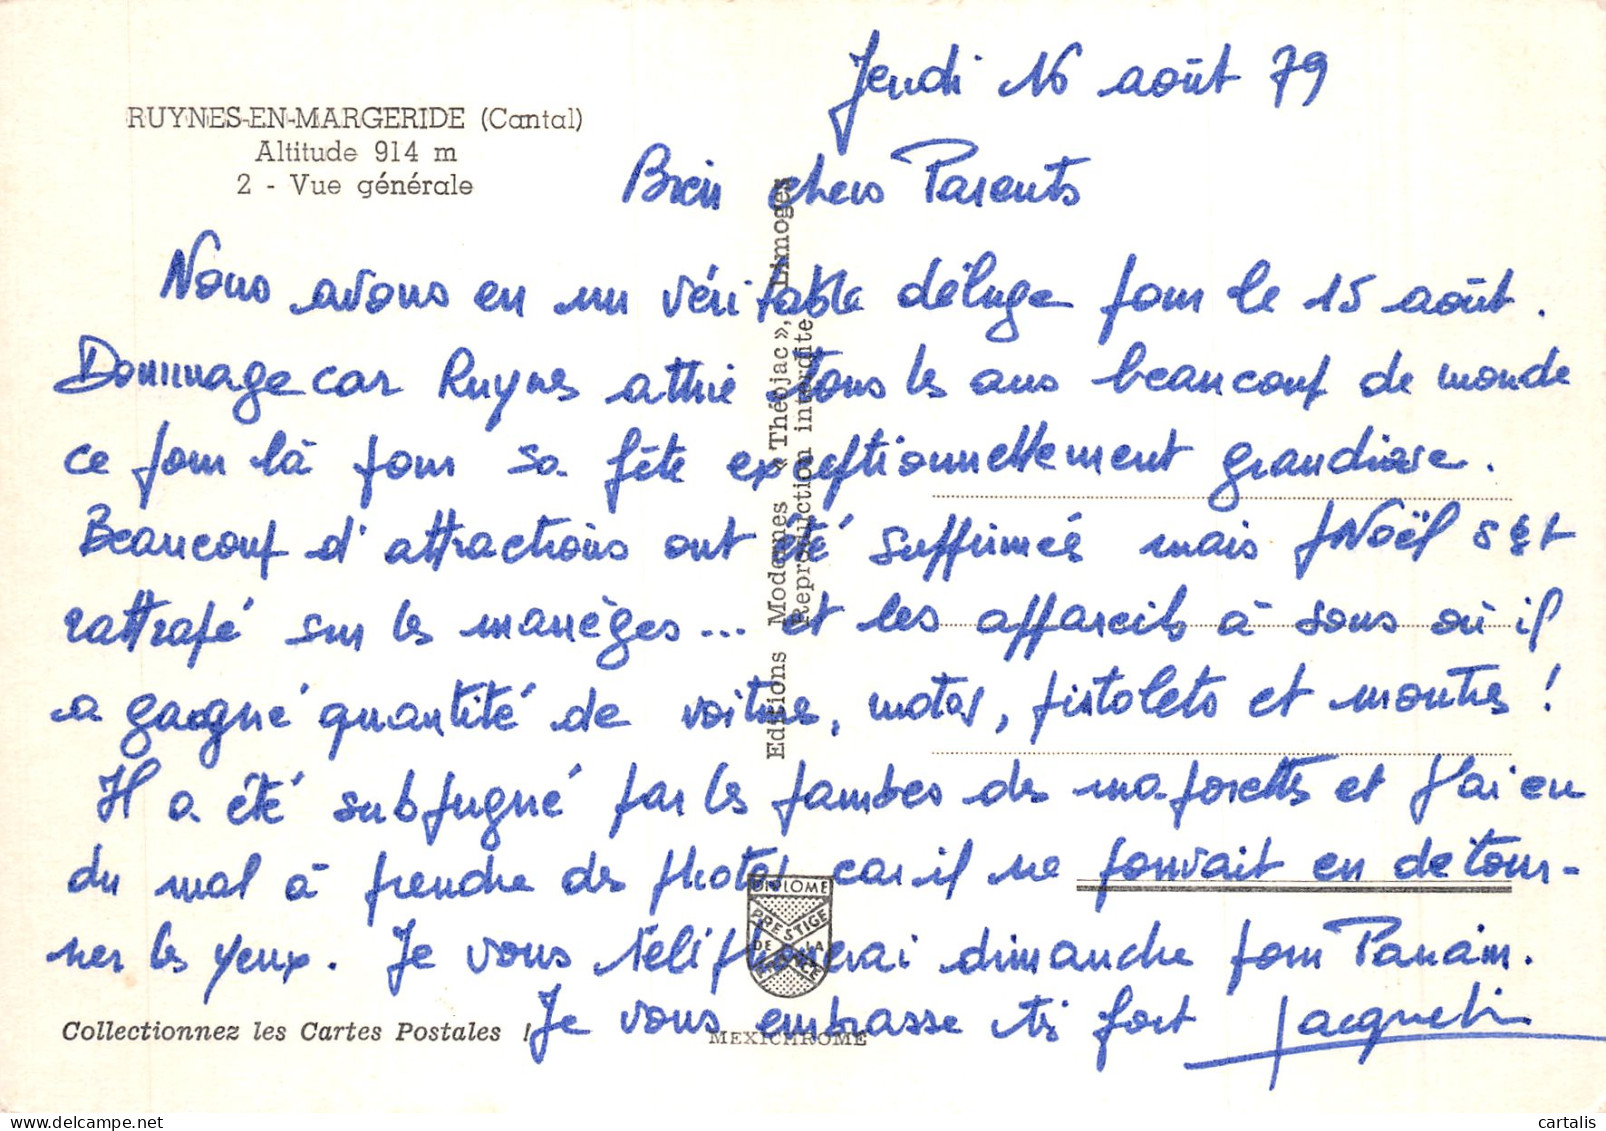 RUYNES-EN-MARGERIDE (Cantal)
Altitude 914 m
2 - Vue générale
Jeudi 16 août 79
Bien chers Parents
Nous avons eu un véritable déluge pour le 15 août.
Dommage car Ruynes attire tous les ans beaucoup de monde
ce jour là pour sa fête exceptionnellement grandiose.
Beaucoup d'attractions ont été supprimées mais J Noël s'est
rattrapé sur les manèges... et les appareils à sous où il
a gagné quantité de voitures, motos, pistolets et montres !
Il a été subjugué par les jambes des majorettes et j'ai eu
du mal à prendre des photos car il ne pouvait en détour-
ner les yeux. Je vous téléphonerai dimanche pour Panam.
Je vous embrasse très fort Jacqueline
Editions Modernes « Théojac », Limoges
Reproduction interdite
DIPLOME
PRESTIGE
DE LA
FRANCE
Collectionnez les Cartes Postales !
MEXICHROME
cartalis